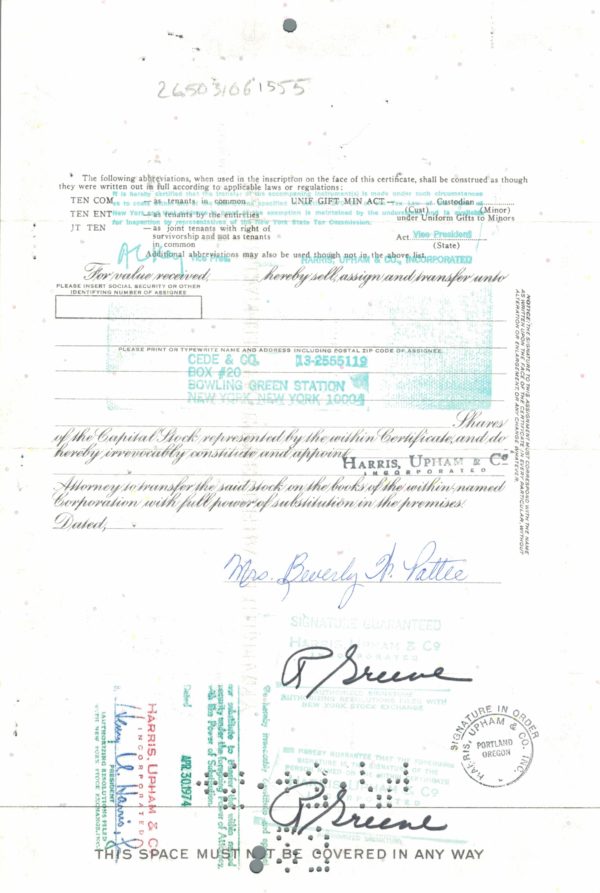 265031061555
The following abbreviations, when used in the inscription on the face of this certificate, shall be construed as though
they were written out in full according to applicable laws or regulations:
It is hereby certified that the transfer of the accompanying instrument(s) is made under such circumstances
TEN COM — as tenants in common UNIF GIFT MIN ACT— Custodian
(Cust) (Minor)
TEN ENT — as tenants by the entireties under Uniform Gifts to Minors
for inspection by representatives of the New York State Tax Commission.
JT TEN — as joint tenants with right of
survivorship and not as tenants
in common
Act
Vice President
(State)
Additional abbreviations may also be used though not in the above list.
HARRIS, UPHAM & CO., INCORPORATED
For value received, hereby sell, assign and transfer unto
PLEASE INSERT SOCIAL SECURITY OR OTHER
IDENTIFYING NUMBER OF ASSIGNEE
PLEASE PRINT OR TYPEWRITE NAME AND ADDRESS INCLUDING POSTAL ZIP CODE OF ASSIGNEE.
CEDE & CO. 13-2555119
BOX #20
BOWLING GREEN STATION
NEW YORK, NEW YORK 10004
Shares
of the Capital Stock represented by the within Certificate, and do
hereby irrevocably constitute and appoint
HARRIS, UPHAM & Co
INCORPORATED
Attorney to transfer the said stock on the books of the within named
Corporation with full power of substitution in the premises.
Dated,
NOTICE: THE SIGNATURE TO THIS ASSIGNMENT MUST CORRESPOND WITH THE NAME
AS WRITTEN UPON THE FACE OF THE CERTIFICATE IN EVERY PARTICULAR, WITHOUT
ALTERATION OR ENLARGEMENT, OR ANY CHANGE WHATEVER.
Mrs. Beverly W. Pattee
SIGNATURE GUARANTEED
HARRIS, UPHAM & Co
INCORPORATED
R Greene
AUTHORIZED SIGNATURE
NEW YORK STOCK EXCHANGE
SIGNATURE IN ORDER
HARRIS, UPHAM & CO. INC.
PORTLAND
OREGON
HARRIS, UPHAM & Co
INCORPORATED
Henry U Harris, Jr
PRESIDENT
Dated
APR 30 1974
R Greene
THIS SPACE MUST NOT BE COVERED IN ANY WAY